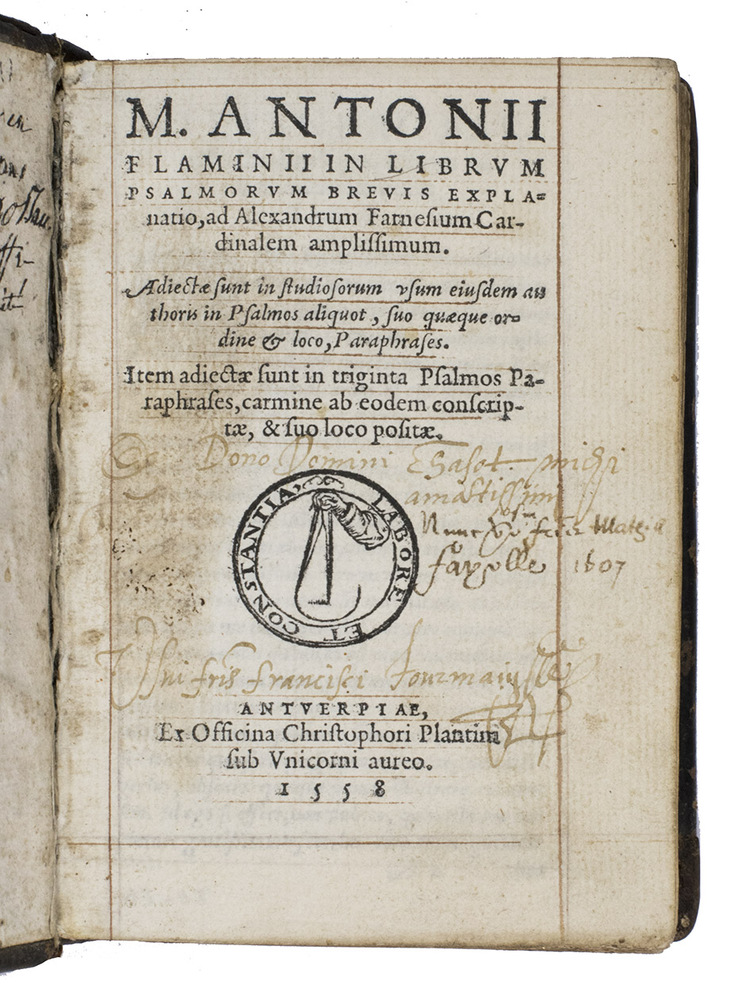 M. ANTONII
FLAMINII IN LIBRVM
PSALMORVM BREVIS EXPLA=
natio, ad Alexandrum Farnesium Car-
dinalem amplissimum.
Adiectæ sunt in studiosorum vsum eiusdem au
thoris in Psalmos aliquot, suo quæque or=
dine & loco, Paraphrases.
Item adiectæ sunt in triginta Psalmos Pa-
raphrases, carmine ab eodem conscrip-
tæ, & suo loco positæ.
Ex Dono Domini Chasot michi
amantissimi
Nunc
1607
CONSTANTIA LABORE ET
Usui fris francisci
ANTVERPIAE,
Ex Officina Christophori Plantini
sub Vnicorni aureo.
1558